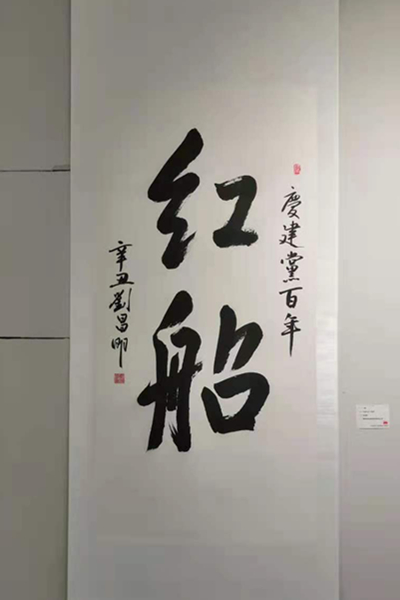 慶建黨百年
红船
辛丑劉昌明